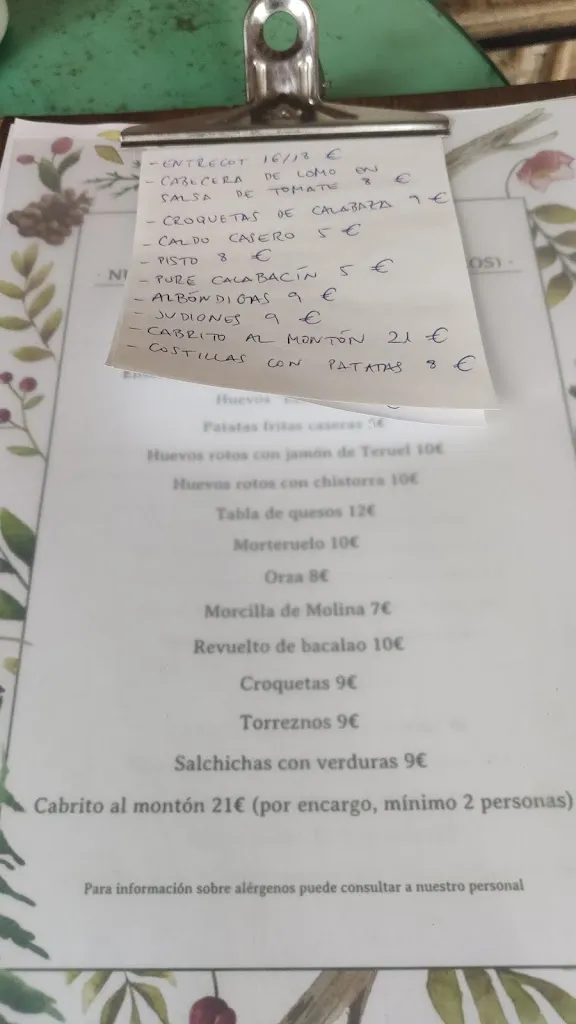 - ENTRECOT 16/18 €
- CABECERA DE LOMO EN
SALSA DE TOMATE 8 €
- CROQUETAS DE CALABAZA 9 €
- CALDO CASERO 5 €
- PISTO 8 €
- PURE CALABACÍN 5 €
- ALBÓNDIGAS 9 €
- JUDIONES 9 €
- CABRITO AL MONTÓN 21 €
- COSTILLAS CON PATATAS 8 €
Huevos
Patatas fritas caseras 5€
Huevos rotos con jamón de Teruel 10€
Huevos rotos con chistorra 10€
Tabla de quesos 12€
Morteruelo 10€
Orza 8€
Morcilla de Molina 7€
Revuelto de bacalao 10€
Croquetas 9€
Torreznos 9€
Salchichas con verduras 9€
Cabrito al montón 21€ (por encargo, mínimo 2 personas)
Para información sobre alérgenos puede consultar a nuestro personal